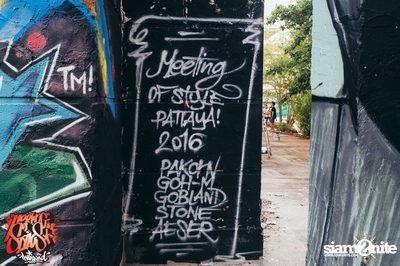 TM!
Meeting
OF STYLE
PATTAYA!
2016
PAKOM
GOH-M
GOBLAND
STONE
AESER
siam2nite